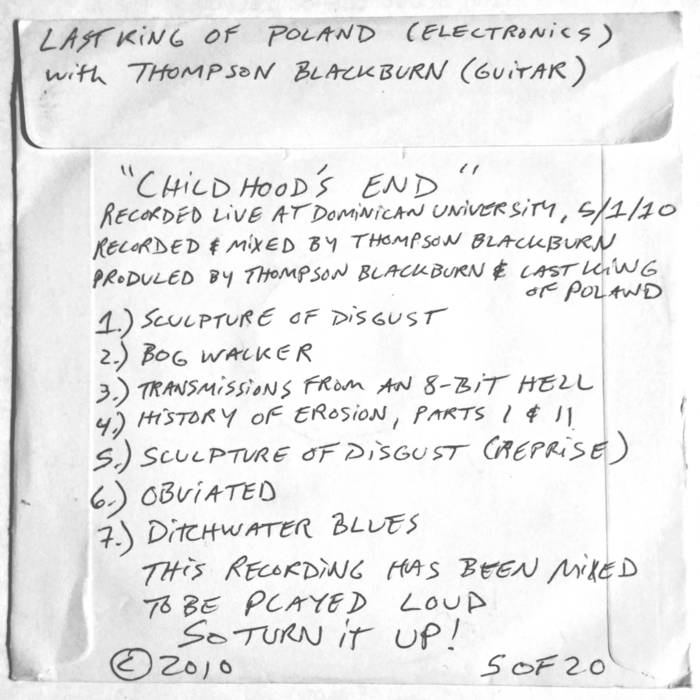 LAST KING OF POLAND (ELECTRONICS)
with THOMPSON BLACKBURN (GUITAR)
"CHILDHOOD'S END"
RECORDED LIVE AT DOMINICAN UNIVERSITY, 5/1/10
RECORDED & MIXED BY THOMPSON BLACKBURN
PRODUCED BY THOMPSON BLACKBURN & LAST KING
OF POLAND
1.) SCULPTURE OF DISGUST
2.) BOG WALKER
3.) TRANSMISSIONS FROM AN 8-BIT HELL
4.) HISTORY OF EROSION, PARTS I & II
5.) SCULPTURE OF DISGUST (REPRISE)
6.) OBVIATED
7.) DITCHWATER BLUES
THIS RECORDING HAS BEEN MIXED
TO BE PLAYED LOUD
SO TURN IT UP!
© 2010 5 OF 20